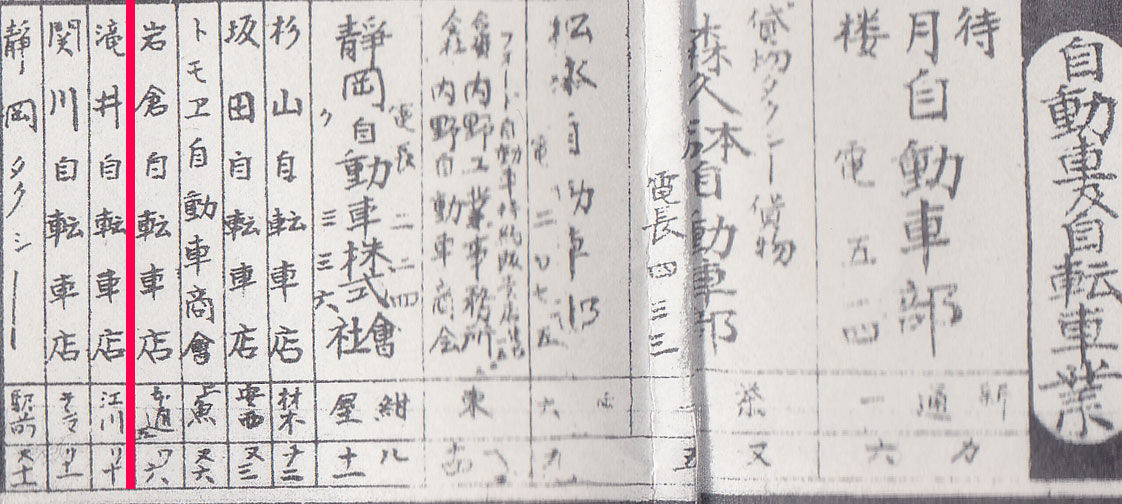 自動車及自転車業
待月楼自動車部
電 五二四
新通一
カ六
貸切タクシー 貸物
森久本店自動車部
電長 四三三
茶
又五
松永自動車
フォード自動車特約販売店
合資会社 内野工業事務所
内野自動車商会
東
静岡自動車株式會社
電長 二二四
〃 三三六
紺屋
ル十一
杉山自転車店
材木
ナ二
坂田自転車店
安西
又三
トモヱ自動車商會
上魚
又六
岩倉自転車店
ワ六
滝井自転車店
江川
リ十
関川自転車店
リ十一
静岡タクシー
駅前